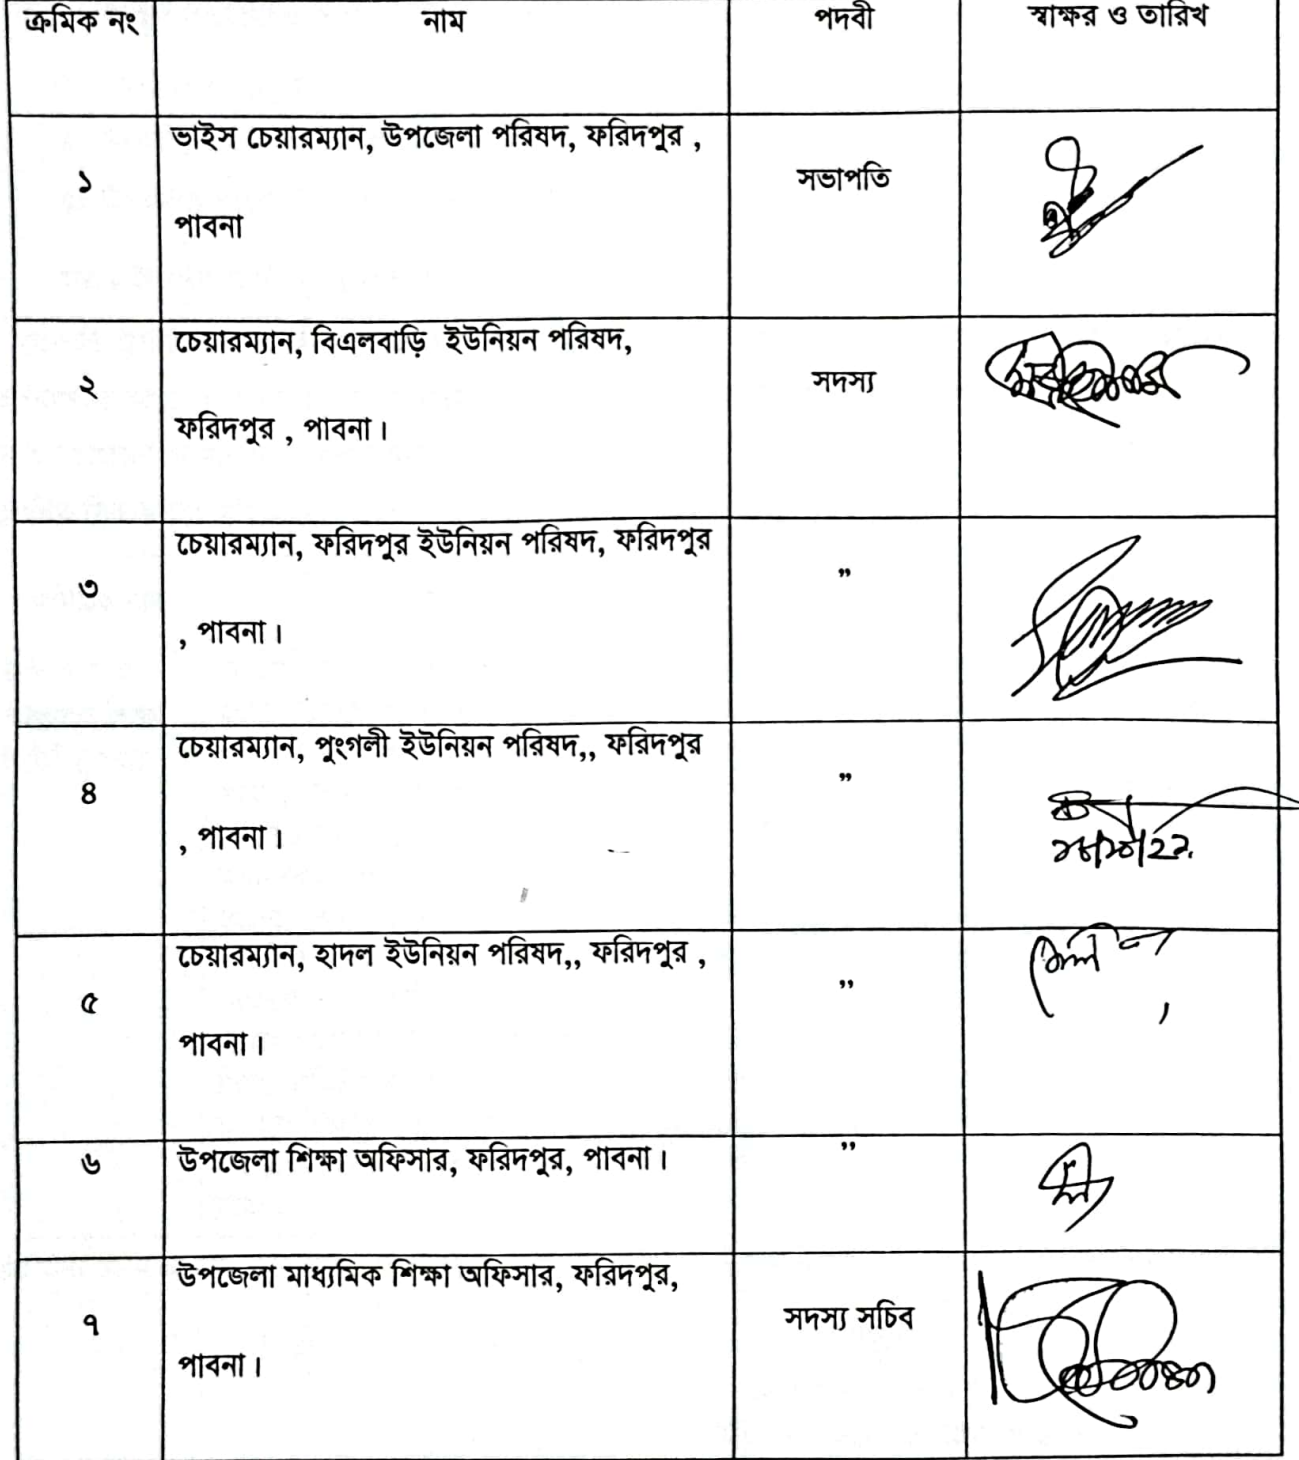 ক্রমিক নং নাম পদবী স্বাক্ষর ও তারিখ
ভাইস চেয়ারম্যান, উপজেলা পরিষদ, ফরিদপুর ,
১ সভাপতি
পাবনা
চেয়ারম্যান, বিএলবাড়ি ইউনিয়ন পরিষদ,
২ সদস্য
ফরিদপুর , পাবনা।
চেয়ারম্যান, ফরিদপুর ইউনিয়ন পরিষদ, ফরিদপুর
৩ ”
, পাবনা।
চেয়ারম্যান, পুংগলী ইউনিয়ন পরিষদ,, ফরিদপুর
৪ ”
, পাবনা।
চেয়ারম্যান, হাদল ইউনিয়ন পরিষদ,, ফরিদপুর ,
৫ ”
পাবনা।
৬ উপজেলা শিক্ষা অফিসার, ফরিদপুর, পাবনা। ”
উপজেলা মাধ্যমিক শিক্ষা অফিসার, ফরিদপুর,
৭ সদস্য সচিব
পাবনা।